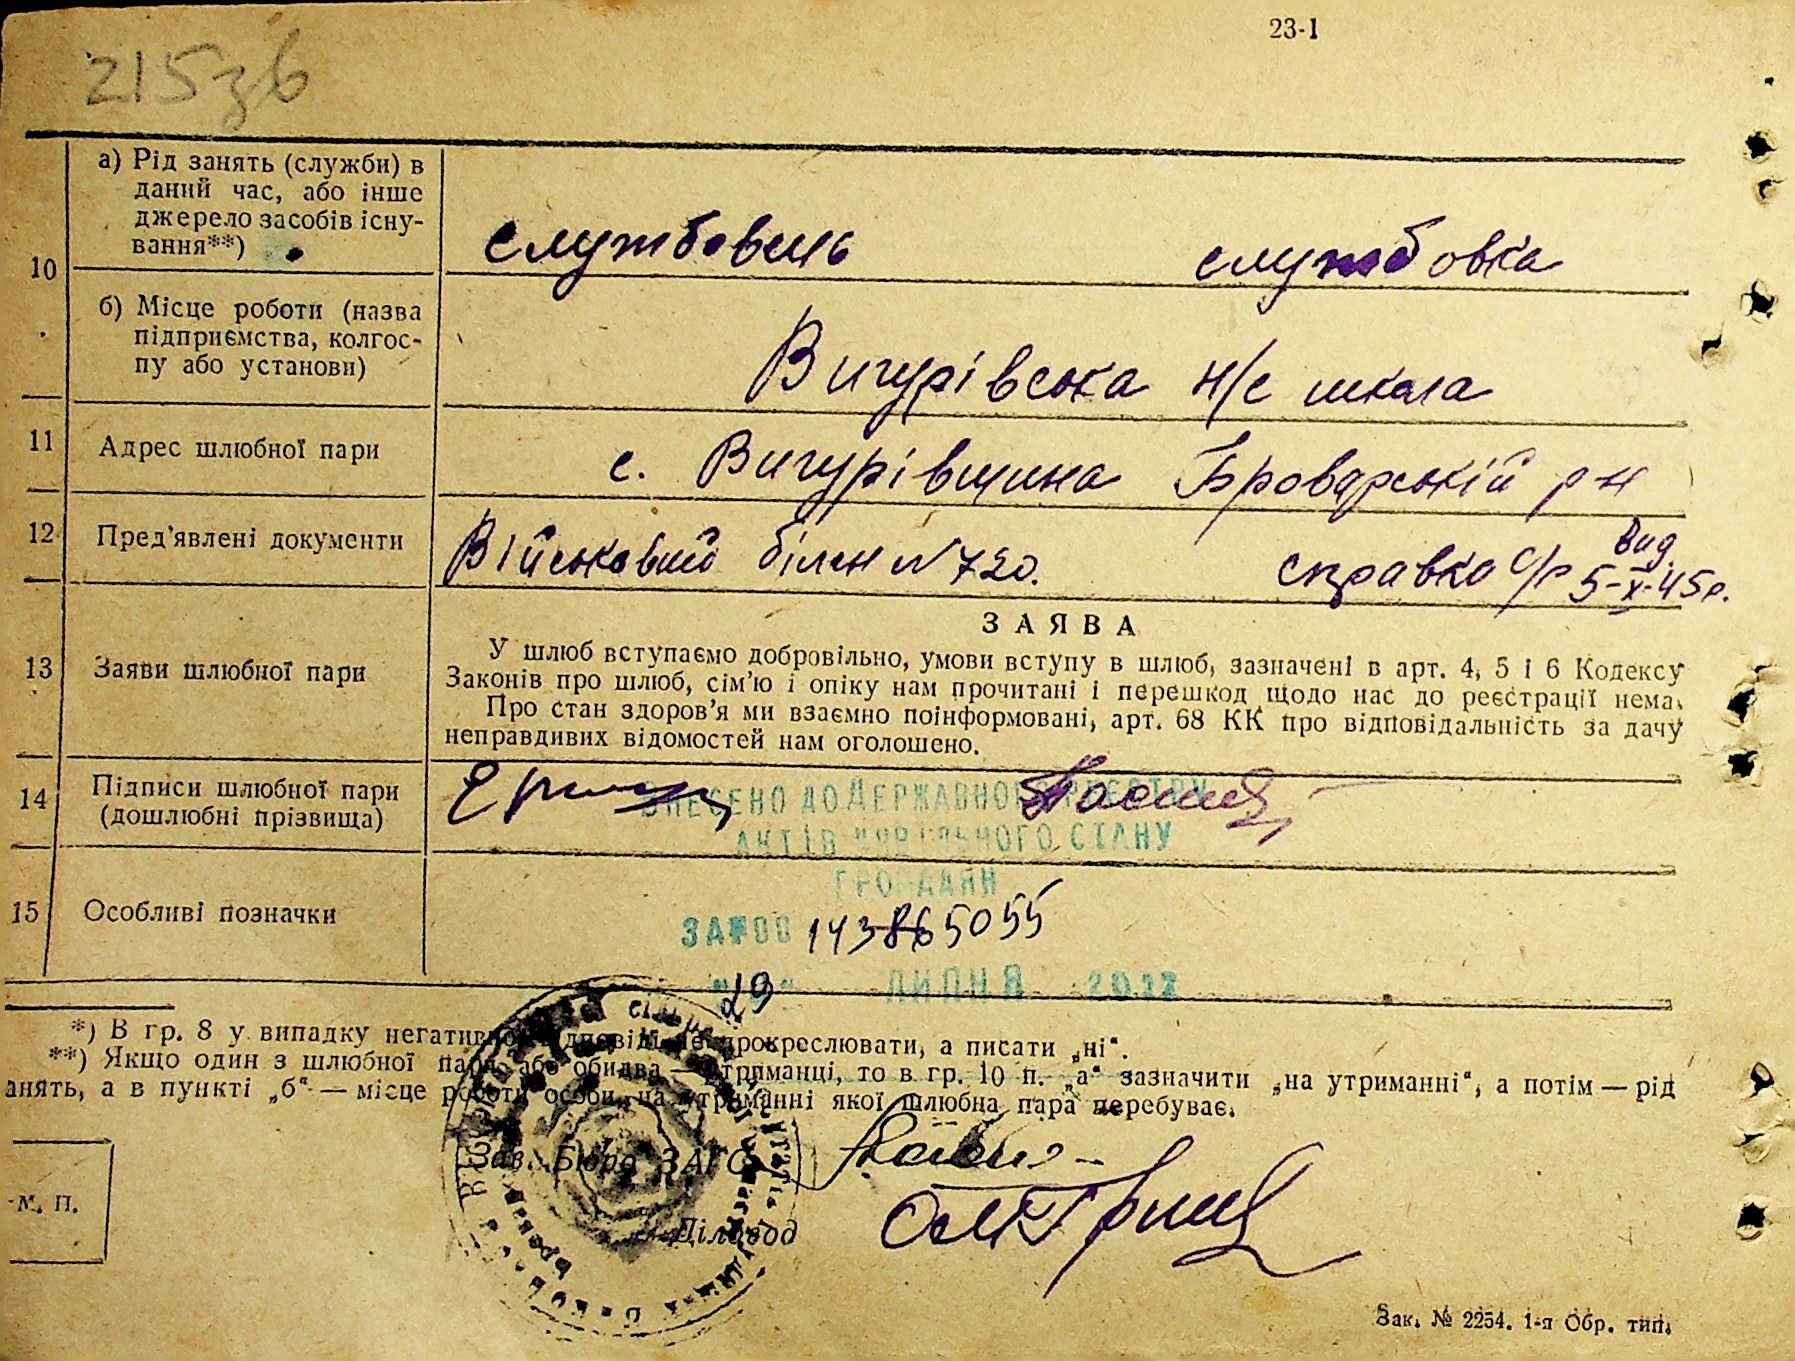 23-1
215зв
10
а) Рід занять (служби) в
даний час, або інше
джерело засобів існу-
вання**)
службовець
службовка
б) Місце роботи (назва
підприємства, колгос-
пу або установи)
Вигурівська н/с школа
11
Адрес шлюбної пари
с. Вигурівщина Броварській р-н
12
Пред'явлені документи
Військовий білет N 720.
справка с/р вид.
5-X-45р.
13
Заяви шлюбної пари
ЗАЯВА
У шлюб вступаємо добровільно, умови вступу в шлюб, зазначені в арт. 4, 5 і 6 Кодексу
Законів про шлюб, сім'ю і опіку нам прочитані і перешкод щодо нас до реєстрації нема.
Про стан здоров'я ми взаємно поінформовані, арт. 68 КК про відповідальність за дачу
неправдивих відомостей нам оголошено.
14
Підписи шлюбної пари
(дошлюбні прізвища)
ВНЕСЕНО ДО ДЕРЖАВНОГО РЕЄСТРУ
АКТІВ ЦИВІЛЬНОГО СТАНУ
ГРОМАДЯН
15
Особливі позначки
ЗА №00
"29" ЛИПНЯ
*) В гр. 8 у випадку негативної відповіді не прокреслювати, а писати „ні".
**) Якщо один з шлюбної пари або обидва — утриманці, то в гр. 10 п. „а" зазначити „на утриманні", а потім — рід
анять, а в пункті „б" — місце роботи особи, на утриманні якої шлюбна пара перебуває.
Зав. Бюро ЗАГС
м. П.
Діловод
Зак. № 2254. 1-я Обр. тип.